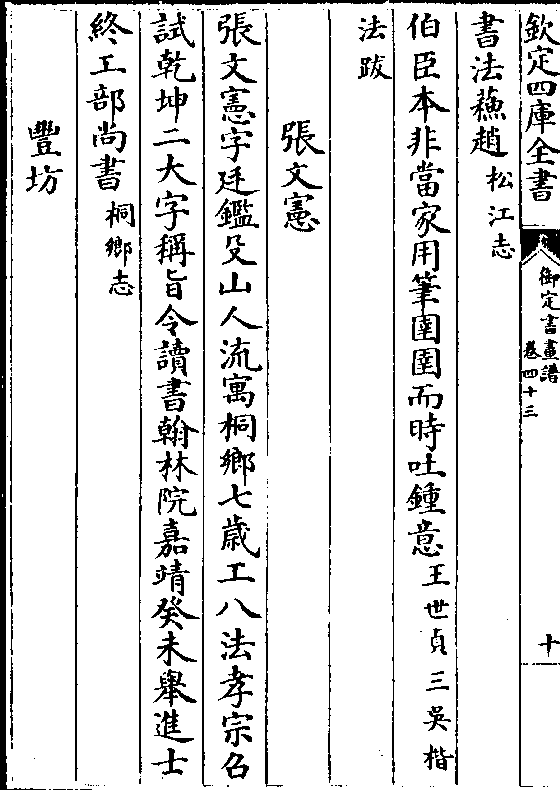 欽定四庫全書
御定書畫譜
卷四十三
十
書法蘓趙 松江志
伯臣本非當家用筆圉圉而時吐鍾意 王世貞三吳楷
法跋
張文憲
張文憲字廷鑑殳山人流寓桐鄉七歲工八法孝宗召
試乾坤二大字稱旨令讀書翰林院嘉靖癸未舉進士
終工部尚書 桐鄉志
豐坊